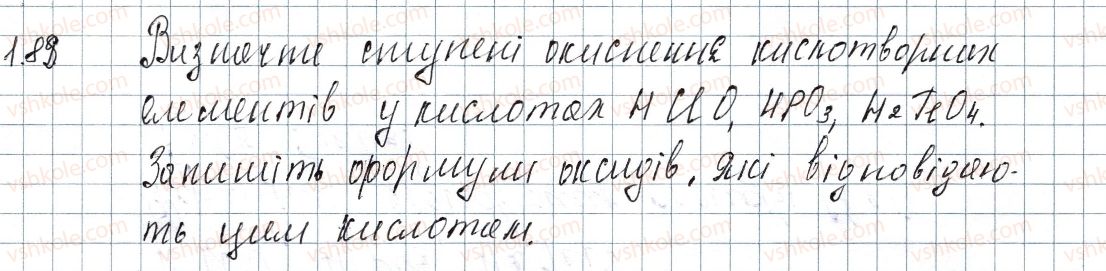 1.83 Визначте ступені окиснення кислотворних
елементів у кислотах HClO, HPO3, H2TeO4.
Запишіть формули оксидів, які відповідаю-
ть цим кислотам.